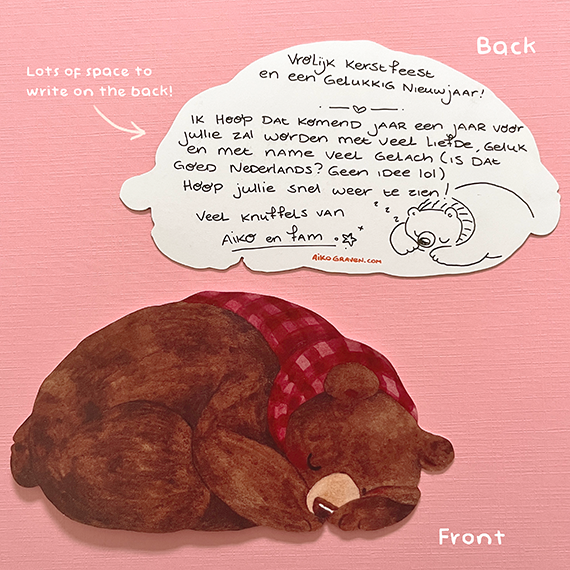 Back
Lots of space to
write on the back!
Vrolijk kerstfeest
en een Gelukkig Nieuwjaar!
Ik hoop dat komend jaar een jaar voor
jullie zal worden met veel liefde, geluk
en met name veel gelach (is dat
goed Nederlands? Geen idee lol)
Hoop jullie snel weer te zien!
Veel knuffels van
Aiko en fam.
z z z z
AIKOGRAVEN.COM
Front